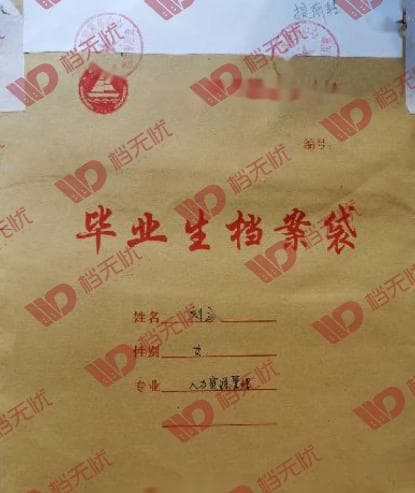 编号:
毕业生档案袋
姓名 刘
性别 女
专业 人力资源管理
档无忧
档无忧
档无忧
档无忧
档无忧
档无忧
档无忧
档无忧
档无忧
档无忧
档无忧
档无忧